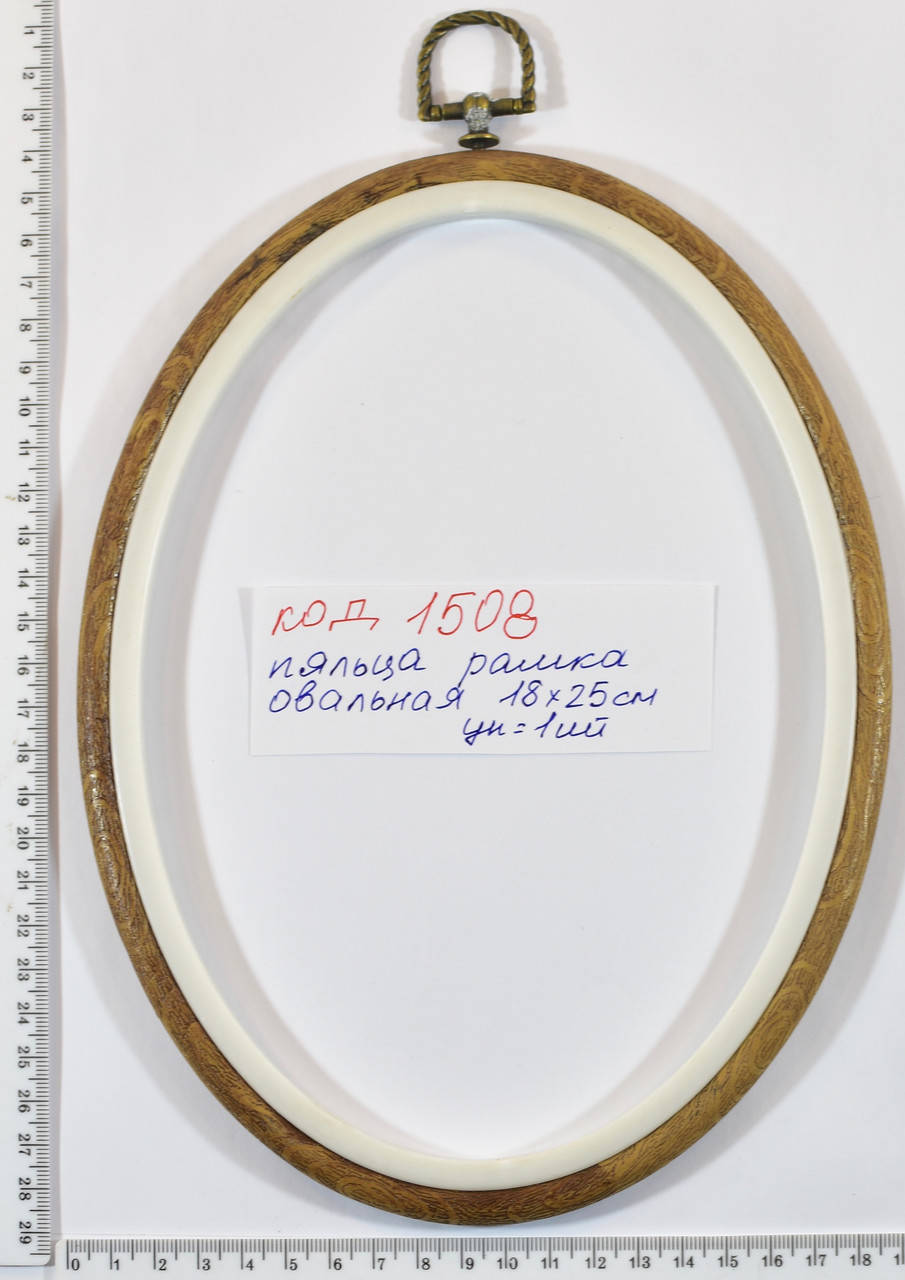 код 1508
пяльца рамка
овальная 18х25см
уп=1шт
1
2
3
4
5
6
7
8
9
10
11
12
13
14
15
16
17
18
19
20
21
22
23
24
25
26
27
28
29
0 1 2 3 4 5 6 7 8 9 10 11 12 13 14 15 16 17 18